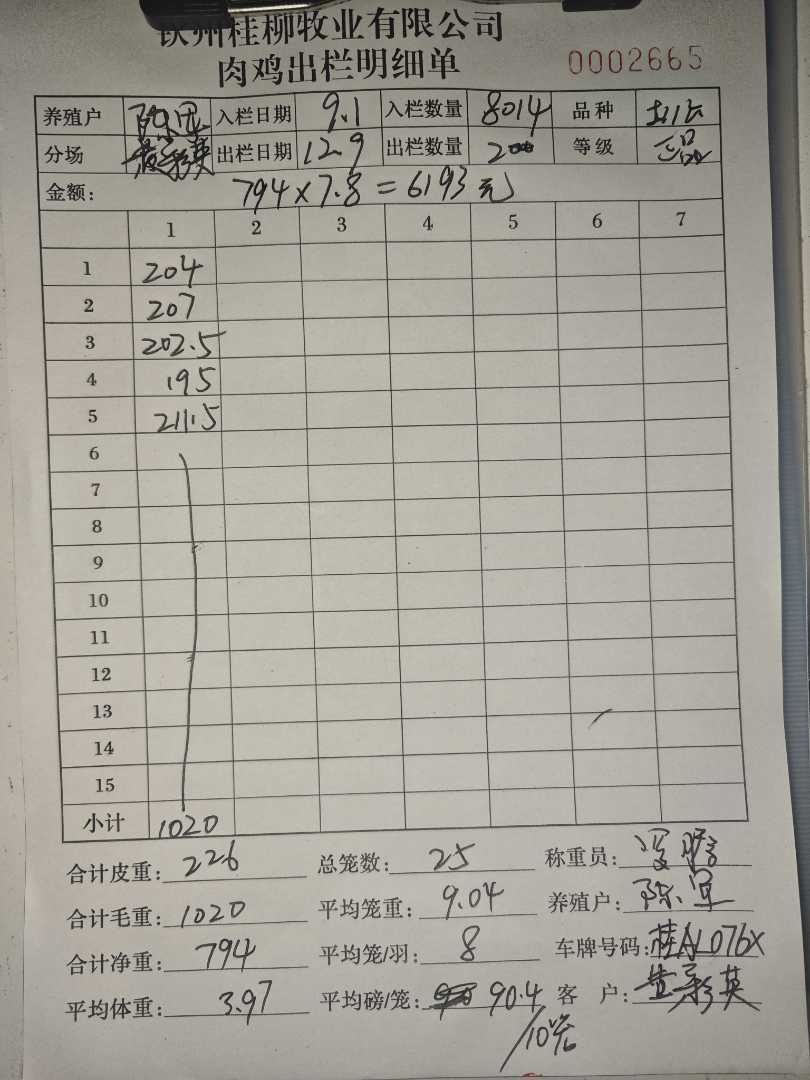 钦州桂柳牧业有限公司
肉鸡出栏明细单 0002665
养殖户 入栏日期 9.1 入栏数量 8014 品种
分场 黄彩英 出栏日期 12.9 出栏数量 200 等级
金额: 794×7.8=6193元
1 2 3 4 5 6 7
1 204
2 207
3 202.5
4 195
5 211.5
6
7
8
9
10
11
12
13
14
15
小计 1020
合计皮重: 226 总笼数: 25 称重员:
合计毛重: 1020 平均笼重: 9.04 养殖户:
合计净重: 794 平均笼/羽: 8 车牌号码: 桂AL076X
平均体重: 3.97 平均磅/笼: 90.4 客 户: 黄彩英
/10笼